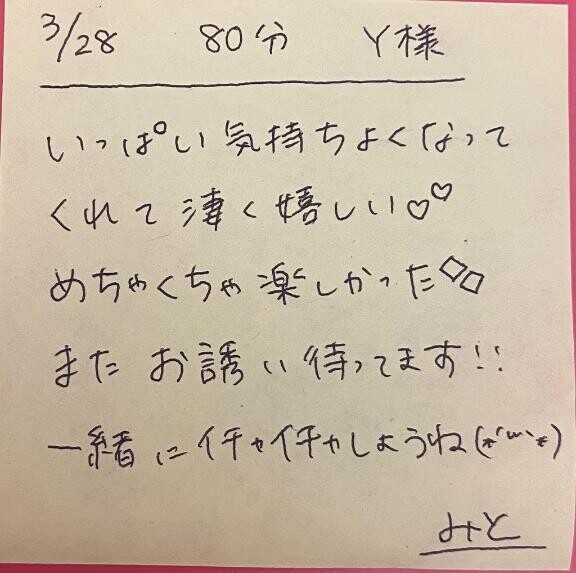 3/28 80分 Y様
いっぱい気持ちよくなって
くれて凄く嬉しい♡♡
めちゃくちゃ楽しかった◇◇
またお誘い待ってます!!
一緒にイチャイチャしようね(*´ω`*)
みと